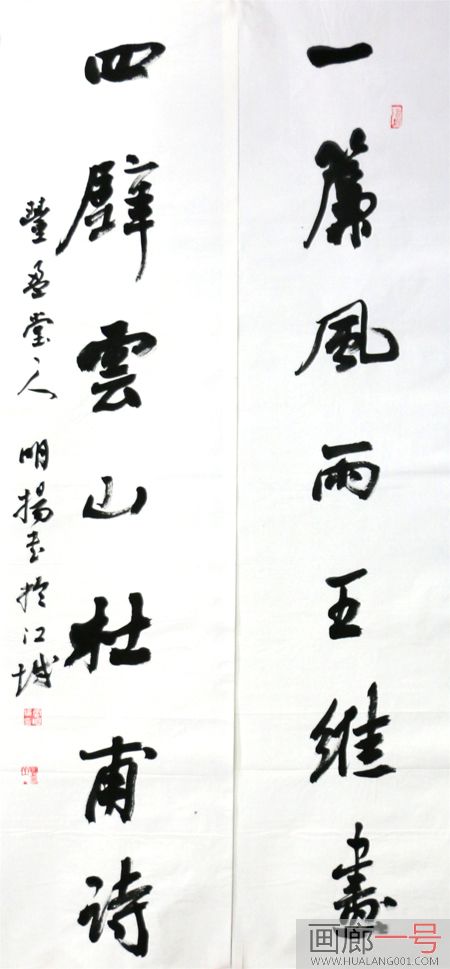 一簾風雨王維畫
四壁雲山杜甫詩
盈堂人 明揚書於江城
画廊一号
WWW.HUALANG001.COM